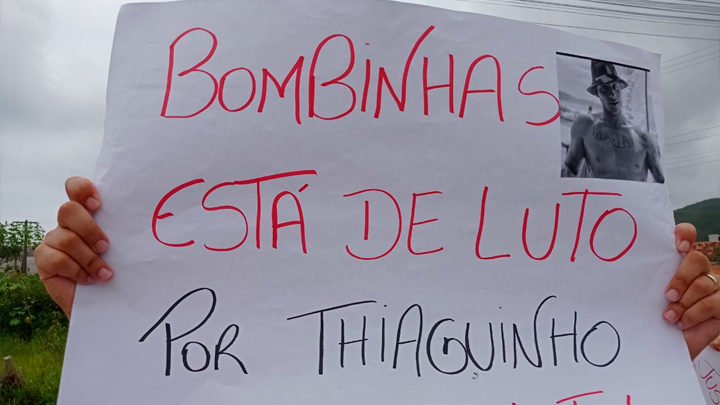 BOMBINHAS
ESTÁ DE LUTO
POR THIAGUINHO